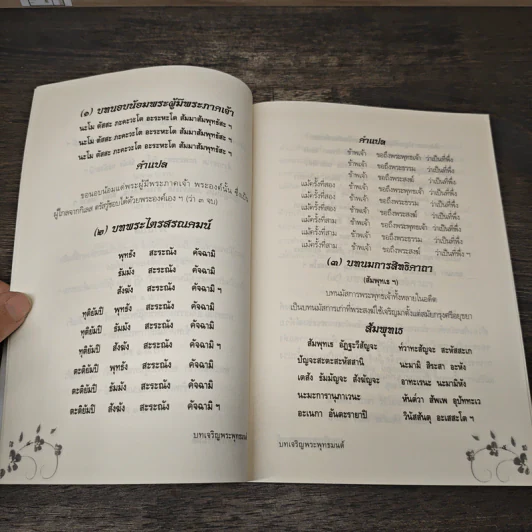 (๑) บทนอบน้อมพระผู้มีพระภาคเจ้า
นะโม ตัสสะ ภะคะวะโต อะระหะโต สัมมาสัมพุทธัสะ ฯ
นะโม ตัสสะ ภะคะวะโต อะระหะโต สัมมาสัมพุทธัสะ ฯ
นะโม ตัสสะ ภะคะวะโต อะระหะโต สัมมาสัมพุทธัสะ ฯ
คำแปล
ขอนอบน้อมแด่พระผู้มีพระภาคเจ้า พระองค์นั้น ซึ่งเป็น
ผู้ไกลจากกิเลส ตรัสรู้ชอบได้ด้วยพระองค์เอง ฯ (ว่า ๓ จบ)
(๒) บทพระไตรสรณคมน์
พุทธัง สะระณัง คัจฉามิ
ธัมมัง สะระณัง คัจฉามิ
สังฆัง สะระณัง คัจฉามิ ฯ
ทุติยัมปิ พุทธัง สะระณัง คัจฉามิ
ทุติยัมปิ ธัมมัง สะระณัง คัจฉามิ
ทุติยัมปิ สังฆัง สะระณัง คัจฉามิ ฯ
ตะติยัมปิ พุทธัง สะระณัง คัจฉามิ
ตะติยัมปิ ธัมมัง สะระณัง คัจฉามิ
ตะติยัมปิ สังฆัง สะระณัง คัจฉามิ ฯ
บทเจริญพระพุทธมนต์
คำแปล
ข้าพเจ้า ขอถึงพระพุทธเจ้า ว่าเป็นที่พึ่ง
ข้าพเจ้า ขอถึงพระธรรม ว่าเป็นที่พึ่ง
ข้าพเจ้า ขอถึงพระสงฆ์ ว่าเป็นที่พึ่ง
แม้ครั้งที่สอง ข้าพเจ้า ขอถึงพระพุทธเจ้า ว่าเป็นที่พึ่ง
แม้ครั้งที่สอง ข้าพเจ้า ขอถึงพระธรรม ว่าเป็นที่พึ่ง
แม้ครั้งที่สอง ข้าพเจ้า ขอถึงพระสงฆ์ ว่าเป็นที่พึ่ง
แม้ครั้งที่สาม ข้าพเจ้า ขอถึงพระพุทธเจ้า ว่าเป็นที่พึ่ง
แม้ครั้งที่สาม ข้าพเจ้า ขอถึงพระธรรม ว่าเป็นที่พึ่ง
แม้ครั้งที่สาม ข้าพเจ้า ขอถึงพระสงฆ์ ว่าเป็นที่พึ่ง ฯ
(๓) บทนมการสิทธิคาถา
(สัมพุทเธ ฯ)
บทนมัสการพระพุทธเจ้าทั้งหลายในอดีต
เป็นบทนมัสการเก่าที่พระสงฆ์ใช้เจริญมาตั้งแต่สมัยกรุงศรีอยุธยา
สัมพุทเธ
สัมพุทเธ อัฏฐะวีสัญจะ ท๎วาทะสัญจะ สะหัสสะเก
ปัญจะสะตะสะหัสสานิ นะมามิ สิระสา อะหัง
เตสัง ธัมมัญจะ สังฆัญจะ อาทะเรนะ นะมามิหัง
นะมะการานุภาเวนะ หันต๎วา สัพเพ อุปัททะเว
อะเนกา อันตะรายาปิ วินัสสันตุ อะเสสะโต ฯ
บทเจริญพระพุทธมนต์